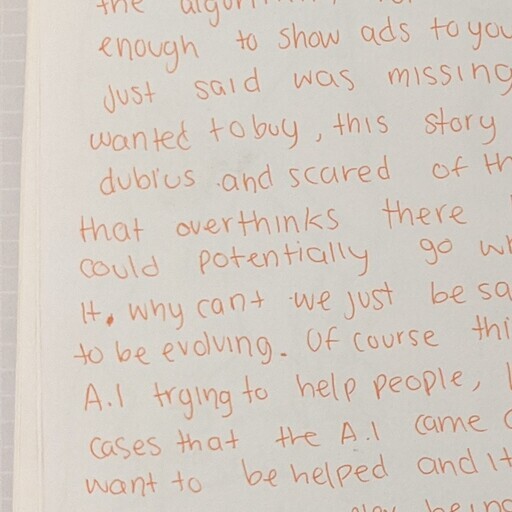 the
enough to show ads to you
just said was missing
wanted to buy, this story
dubius and scared of
that overthinks there
could potentially go
It, why can't we just be
to be evolving. Of course
A.I trying to help people,
cases that the A.I came
want to be helped and it
being